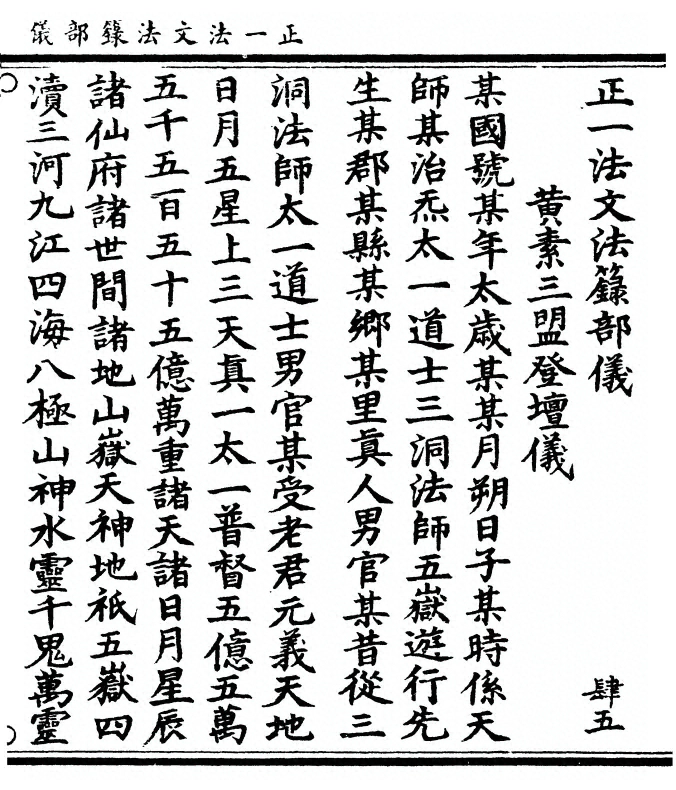 正一法文法籙部儀
正一法文法籙部儀 肆五
黃素三盟登壇儀
某國號某年太歲某某月朔日子某時係天
師某治炁太一道士三洞法師五嶽遊行先
生某郡某縣某鄉某里眞人男官某昔從三
洞法師太一道士男官某受老君元義天地
日月五星上三天眞一太一普督五億五萬
五千五百五十五億萬重諸天諸日月星辰
諸仙府諸世間諸地山嶽天神地祇五嶽四
瀆三河九江四海八極山神水靈千鬼萬靈